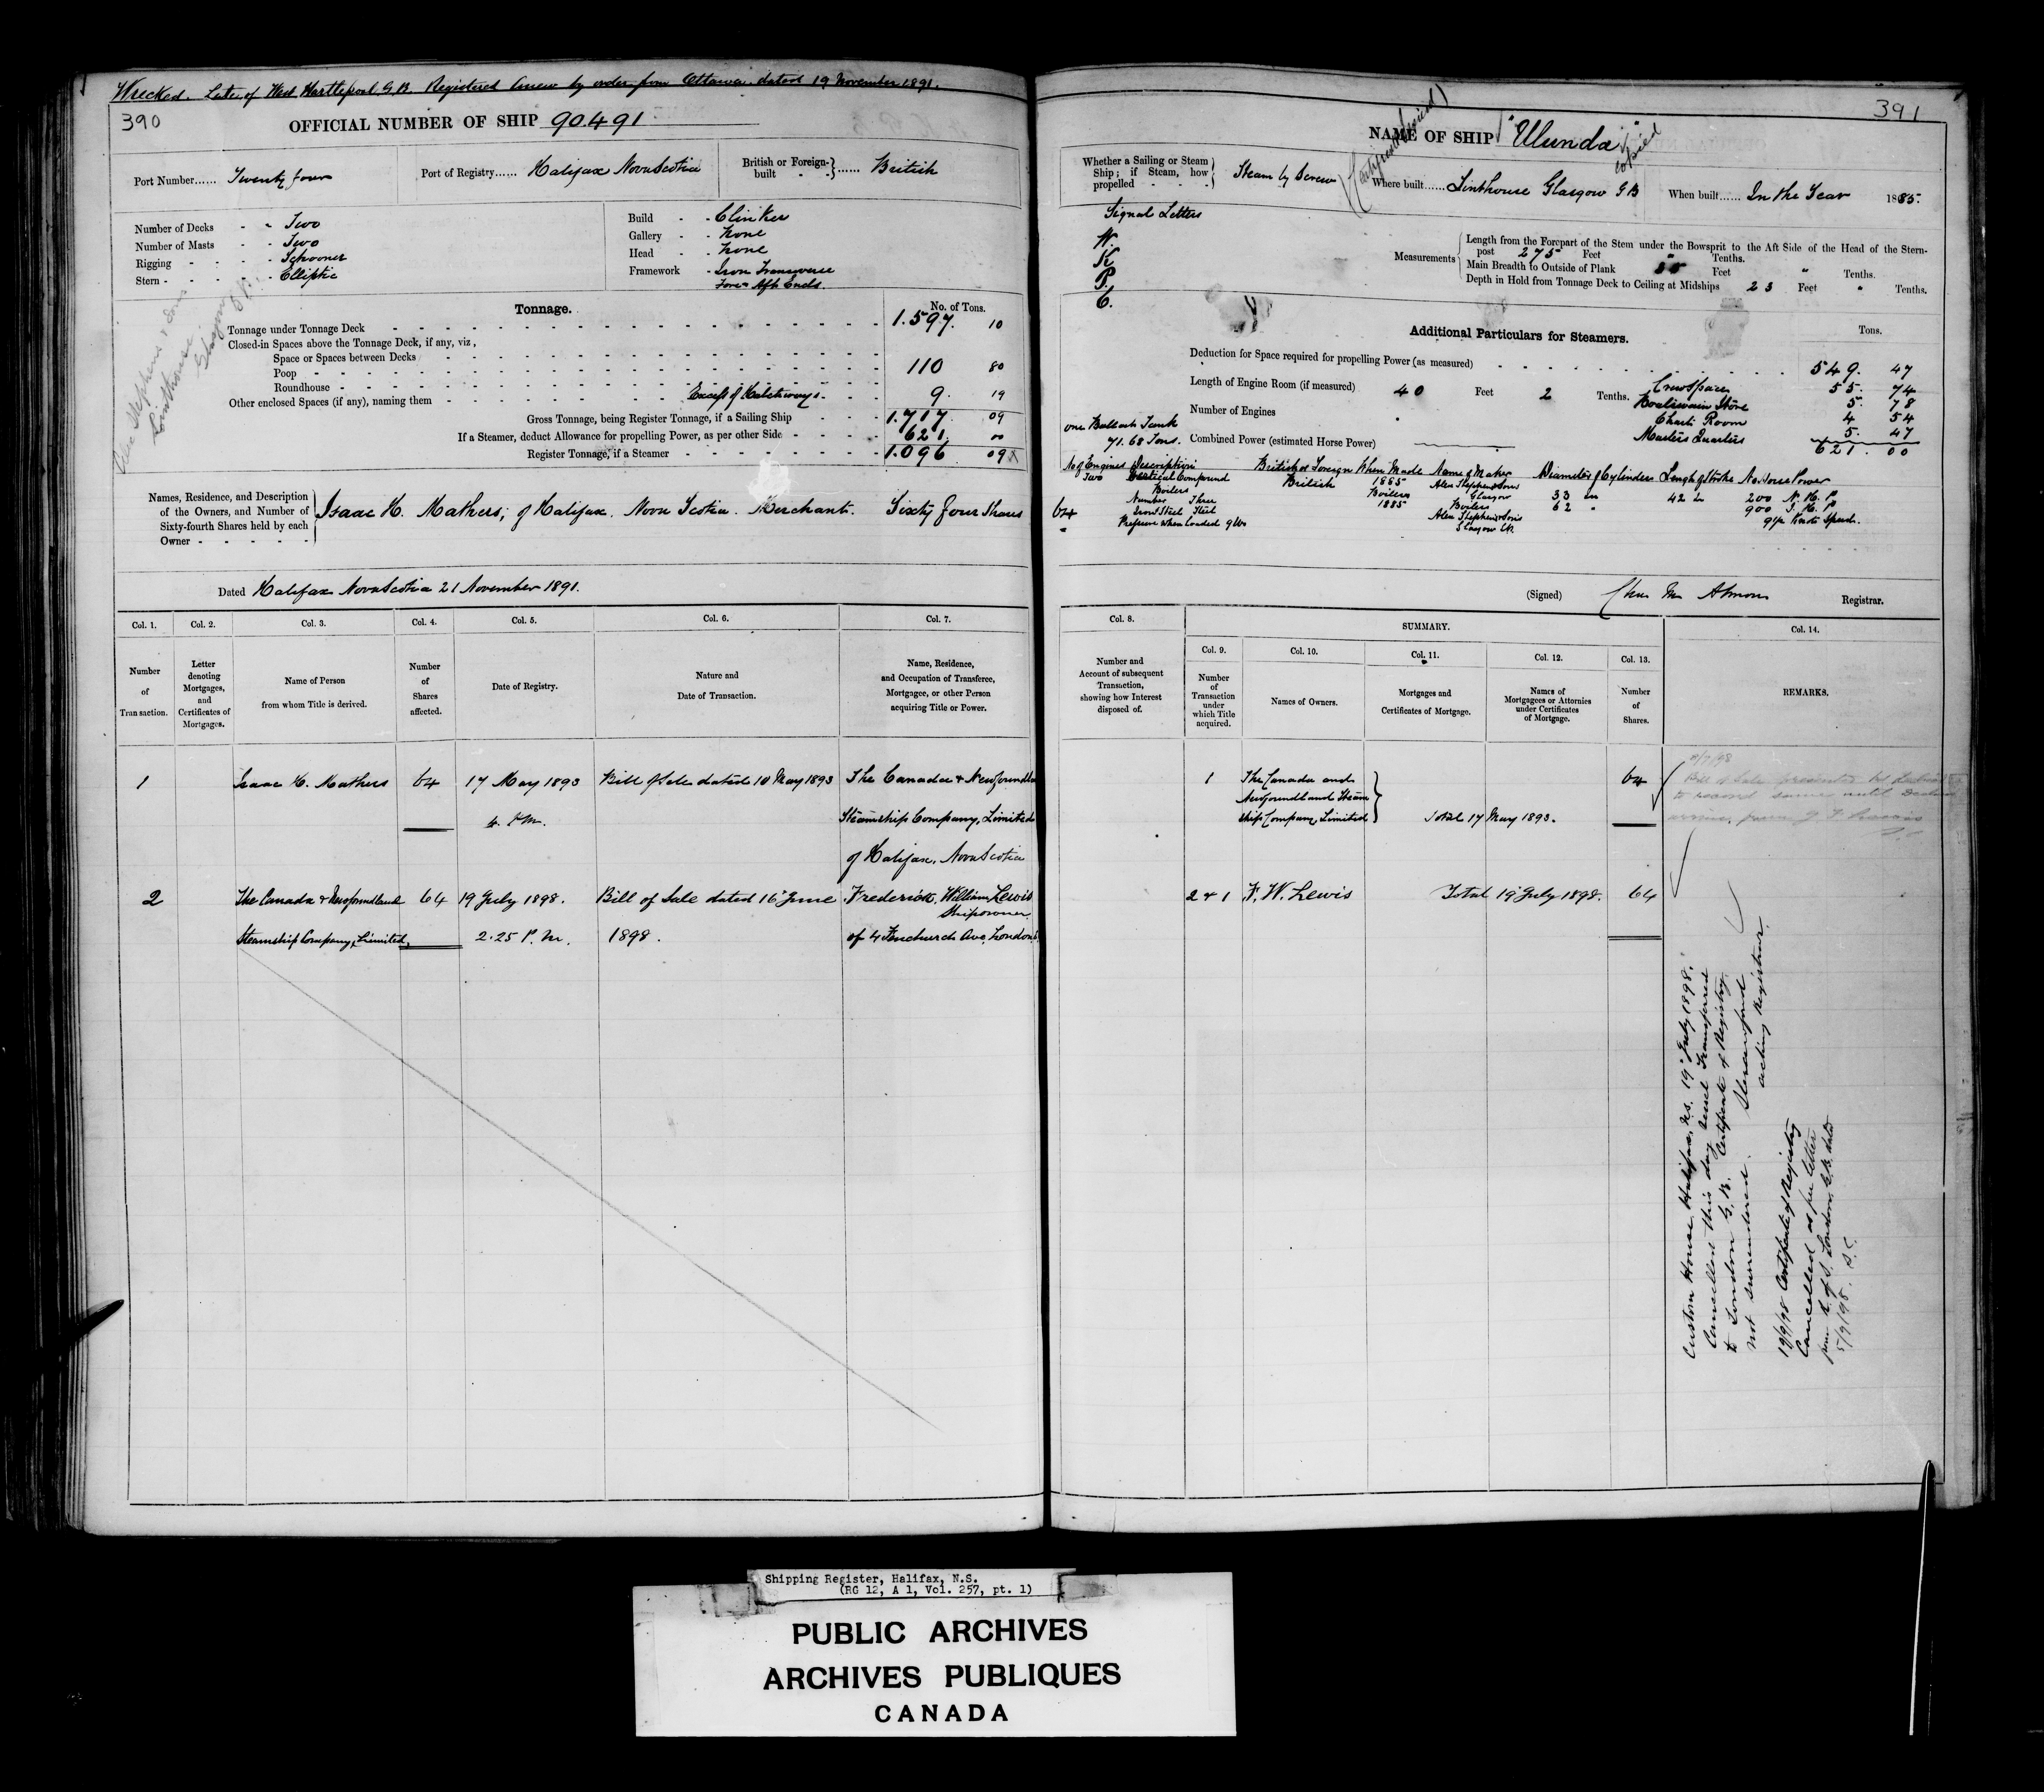 Wrecked. Late of West Hartlepool G.B. Registered Anew by order from Ottawa dated 19 November 1891.
390
OFFICIAL NUMBER OF SHIP 90.491
Port Number...... Twenty four
Port of Registry...... Halifax Nova Scotia
British or Foreign-built ...... British
Number of Decks - - Two
Number of Masts - - Two
Rigging - - - - Schooner
Stern - - - - Elliptic
Build - - Clinker
Gallery - - None
Head - - None
Framework - Iron Transverse
Fore & Aft Ends.
Tonnage.
No. of Tons.
Tonnage under Tonnage Deck 1.597. 10
Closed-in Spaces above the Tonnage Deck, if any, viz,
Space or Spaces between Decks
Poop 110 80
Roundhouse
Other enclosed Spaces (if any), naming them Excess of Hatchways 9. 19
Gross Tonnage, being Register Tonnage, if a Sailing Ship 1.717. 09
If a Steamer, deduct Allowance for propelling Power, as per other Side 621. 00
Register Tonnage, if a Steamer 1.096. 09
Names, Residence, and Description of the Owners, and Number of Sixty-fourth Shares held by each Owner
Isaac H. Mathers, of Halifax. Nova Scotia. Merchant. Sixty four Shares
Dated Halifax Nova Scotia 21 November 1891.
Col. 1. Col. 2. Col. 3. Col. 4. Col. 5. Col. 6. Col. 7.
Number of Transaction.
Letter denoting Mortgages, and Certificates of Mortgages.
Name of Person from whom Title is derived.
Number of Shares affected.
Date of Registry.
Nature and Date of Transaction.
Name, Residence, and Occupation of Transferee, Mortgagee, or other Person acquiring Title or Power.
1 Isaac H. Mathers 64 17 May 1893 Bill of Sale dated 10 May 1893 The Canada & Newfoundla
4. P.M. Steamship Company, Limited
of Halifax, Nova Scotia
2 The Canada & Newfoundland 64 19 July 1898. Bill of Sale dated 16 June Frederick William Lewis
Shipowner
Steamship Company, Limited, 2.25 P.M. 1898. of 4 Fenchurch Ave, London
391
NAME OF SHIP "Ulunda"
copied
Whether a Sailing or Steam Ship; if Steam, how propelled - - - Steam by Screw
Where built...... Linthouse Glasgow G B
When built...... In the Year 1885.
Signal Letters
W.
K.
P.
C.
Measurements
Length from the Forepart of the Stem under the Bowsprit to the Aft Side of the Head of the Stern-
post 275 Feet " Tenths.
Main Breadth to Outside of Plank Feet " Tenths.
Depth in Hold from Tonnage Deck to Ceiling at Midships 23 Feet " Tenths.
Additional Particulars for Steamers.
Tons.
Deduction for Space required for propelling Power (as measured) 549. 47
Length of Engine Room (if measured) 40 Feet 2 Tenths. Crew space 55. 74
Boatswain Store 5. 78
Number of Engines Chart Room 4 54
one Ballast Tank
71.68 Tons. Combined Power (estimated Horse Power) Masters Quarters 5. 47
621. 00
No of Engines Description British or Foreign When Made Name of Maker Diameter of Cylinders Length of Stroke No. Horse Power
Two Vertical Compound British 1885 Alex Stephen & Sons
Boilers Boilers Glasgow 33 in 42 in 200 N. H. P
Number Three 1885 Boilers 62 " 900 I. H. P
Alex Stephen & Sons
Pressure when Loaded 9 lbs Glasgow Knots Speed.
64
(Signed) Chas M Almon Registrar.
Col. 8.
SUMMARY.
Col. 9. Col. 10. Col. 11. Col. 12. Col. 13. Col. 14.
Number and Account of subsequent Transaction, showing how Interest disposed of.
Number of Transaction under which Title acquired.
Names of Owners.
Mortgages and Certificates of Mortgage.
Names of Mortgagees or Attornies under Certificates of Mortgage.
Number of Shares.
REMARKS.
1 The Canada and 64
Newfoundland Steam
ship Company, Limited Total 17 May 1893.
2 & 1 F. W. Lewis Total 19 July 1898. 64
Custom House Halifax, N.S. 19 July 1898.
Cancelled this day vessel transferred
to London G.B. Certificate of Registry
not surrendered.
acting Registrar.
Certificate of Registry
Cancelled as per letter
from R. of S. London, G.B. dated
5/9/98. S.C.
Shipping Register, Halifax, N.S.
(RG 12, A 1, Vol. 257, pt. 1)
PUBLIC ARCHIVES
ARCHIVES PUBLIQUES
CANADA